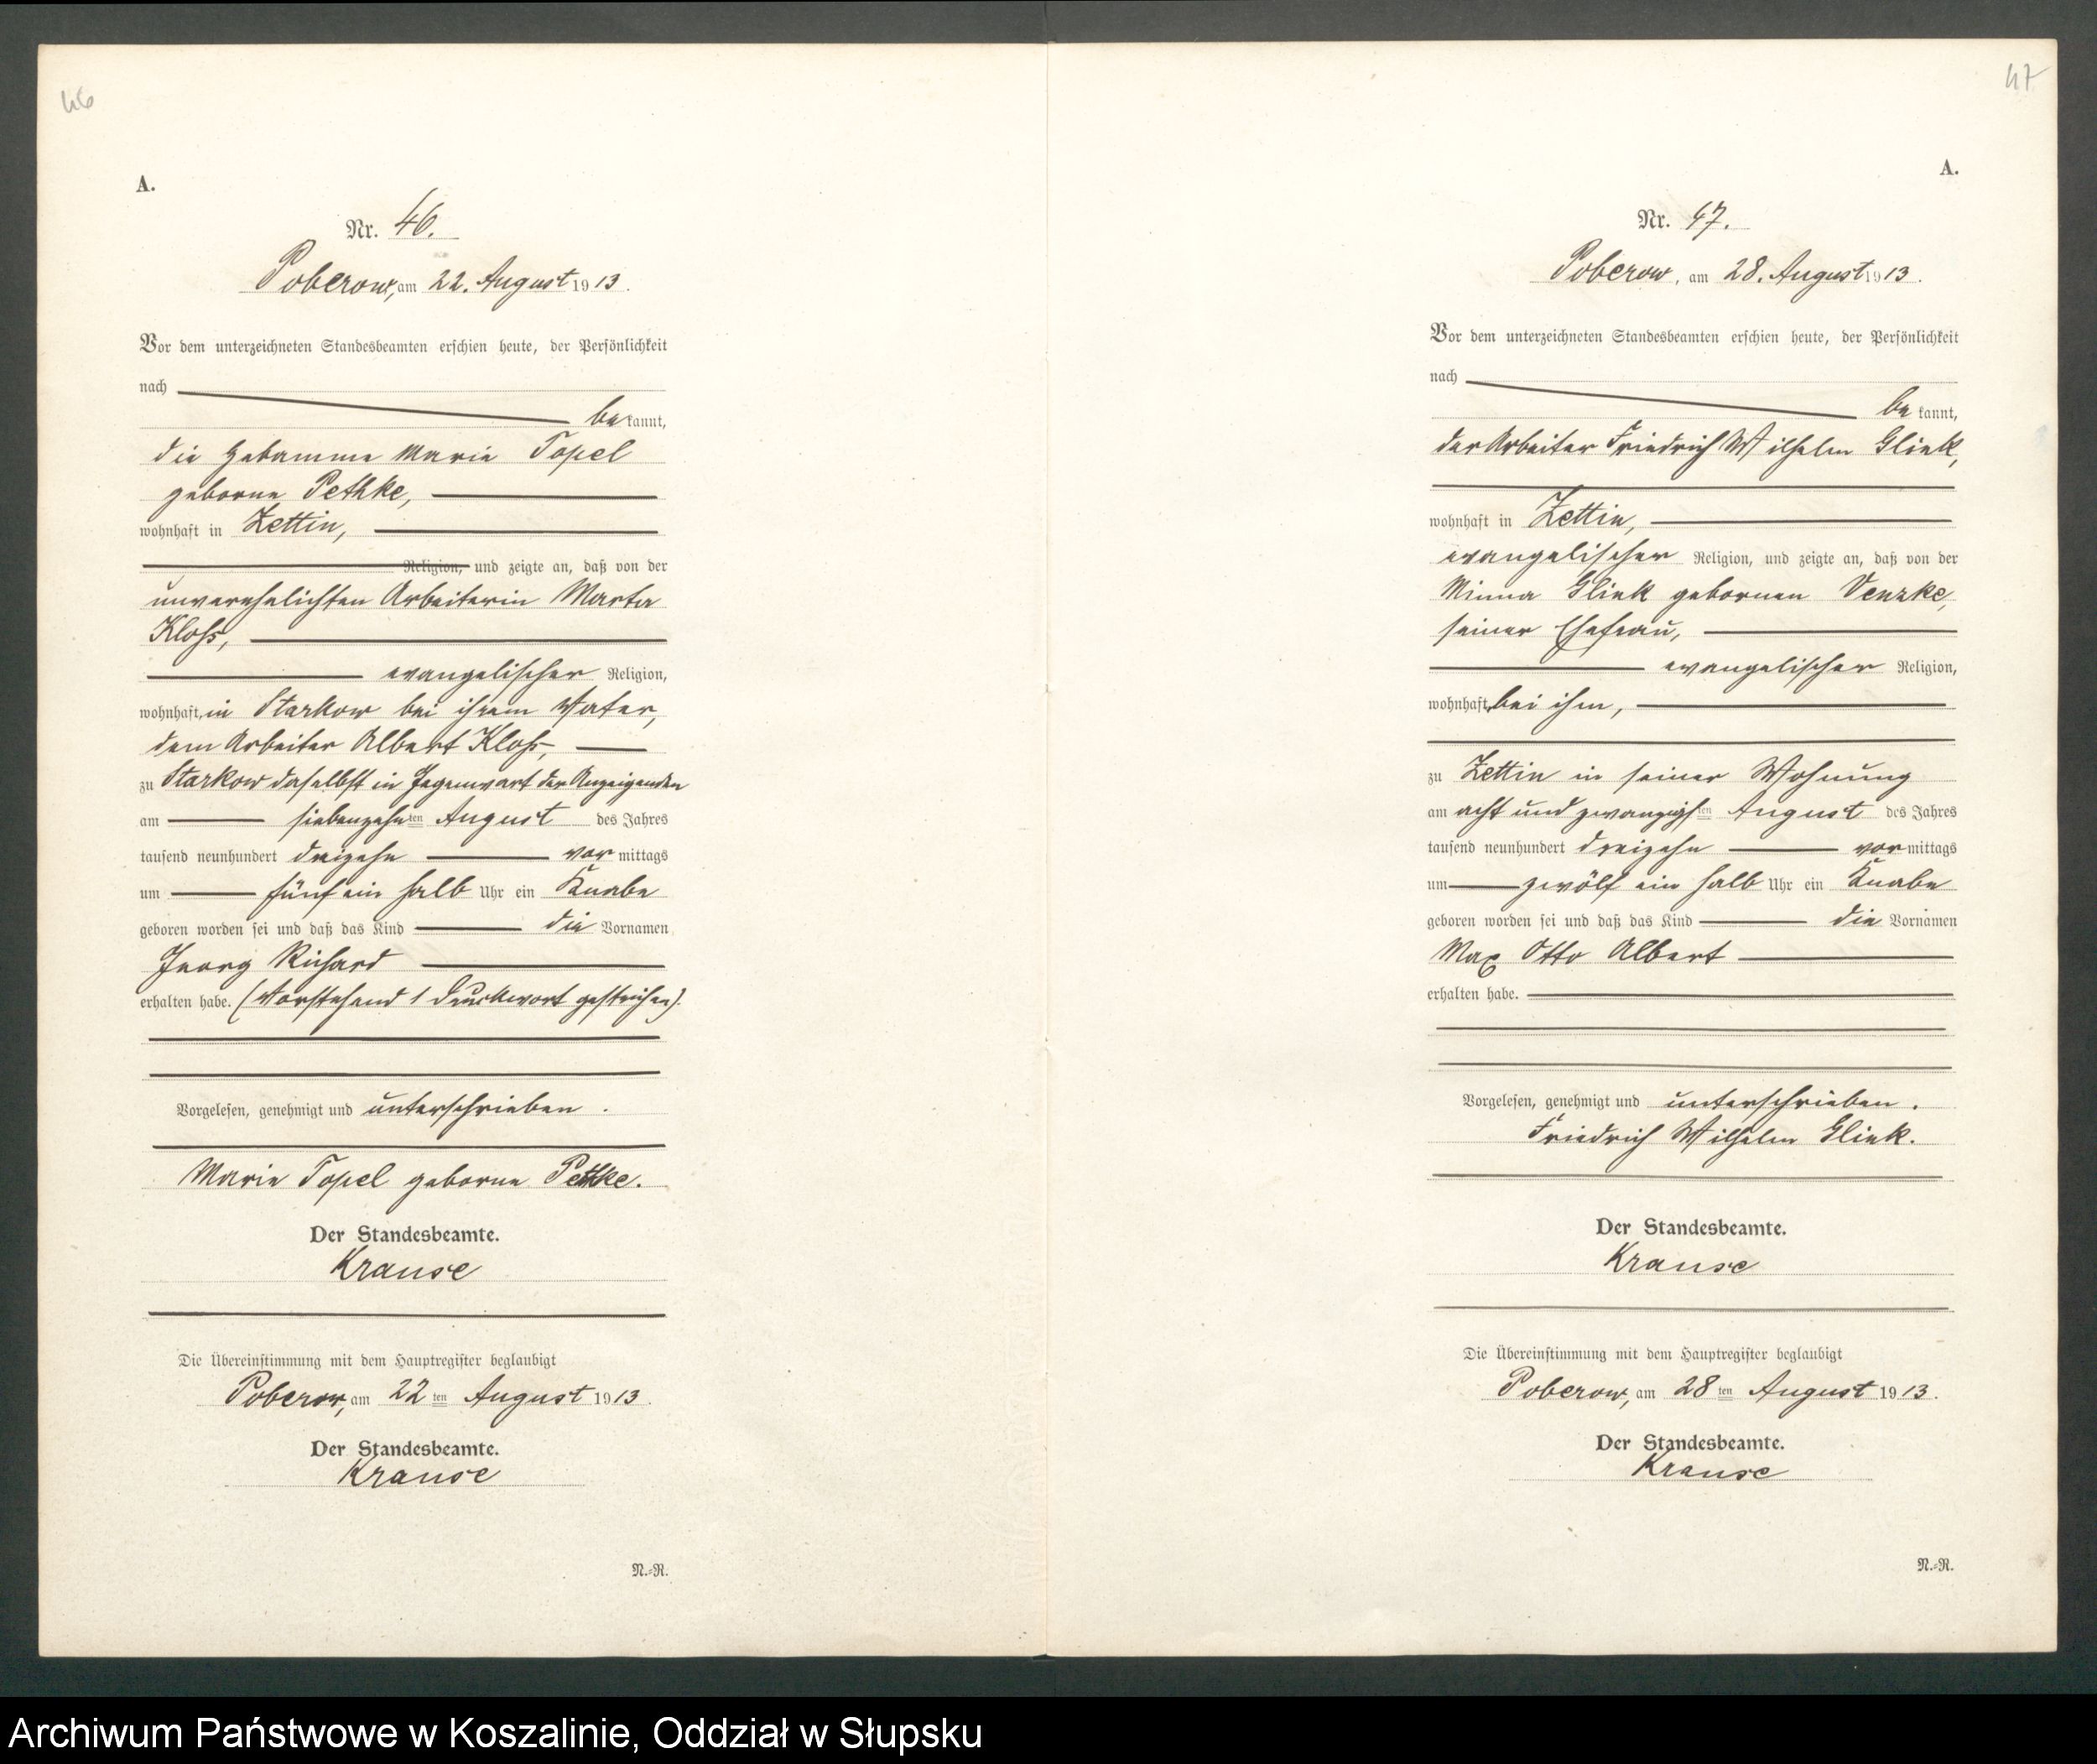 46
A.
Nr. 46.
Poberow, am 22. August 1913.
Vor dem unterzeichneten Standesbeamten erschien heute, der Persönlichkeit
nach
bekannt,
die Hebamme Marie Topel
geborne Pethke,
wohnhaft in Zettin,
Religion, und zeigte an, daß von der
unverehelichten Arbeiterin Marta
Kloß,
evangelischer Religion,
wohnhaft in Starkow bei ihrem Vater,
dem Arbeiter Albert Kloß,
zu Starkow daselbst in Gegenwart der Anzeigenden
am siebenzehnten August des Jahres
tausend neunhundert dreizehn vormittags
um fünf ein halb Uhr ein Knabe
geboren worden sei und daß das Kind die Vornamen
Georg Richard
erhalten habe. (Vorstehend 1 Druckwort gestrichen).
Vorgelesen, genehmigt und unterschrieben.
Marie Topel geborne Pethke.
Der Standesbeamte.
Krause
Die Übereinstimmung mit dem Hauptregister beglaubigt
Poberow, am 22ten August 1913.
Der Standesbeamte.
Krause
N.-R.
47
A.
Nr. 47.
Poberow, am 28. August 1913.
Vor dem unterzeichneten Standesbeamten erschien heute, der Persönlichkeit
nach
bekannt,
der Arbeiter Friedrich Wilhelm Glink,
wohnhaft in Zettin,
evangelischer Religion, und zeigte an, daß von der
Minna Glink gebornen Venzke,
seiner Ehefrau,
evangelischer Religion,
wohnhaft bei ihm,
zu Zettin in seiner Wohnung
am acht und zwanzigsten August des Jahres
tausend neunhundert dreizehn vormittags
um zwölf ein halb Uhr ein Knabe
geboren worden sei und daß das Kind die Vornamen
Max Otto Albert
erhalten habe.
Vorgelesen, genehmigt und unterschrieben.
Friedrich Wilhelm Glink.
Der Standesbeamte.
Krause
Die Übereinstimmung mit dem Hauptregister beglaubigt
Poberow, am 28ten August 1913.
Der Standesbeamte.
Krause
N.-R.
Archiwum Państwowe w Koszalinie, Oddział w Słupsku